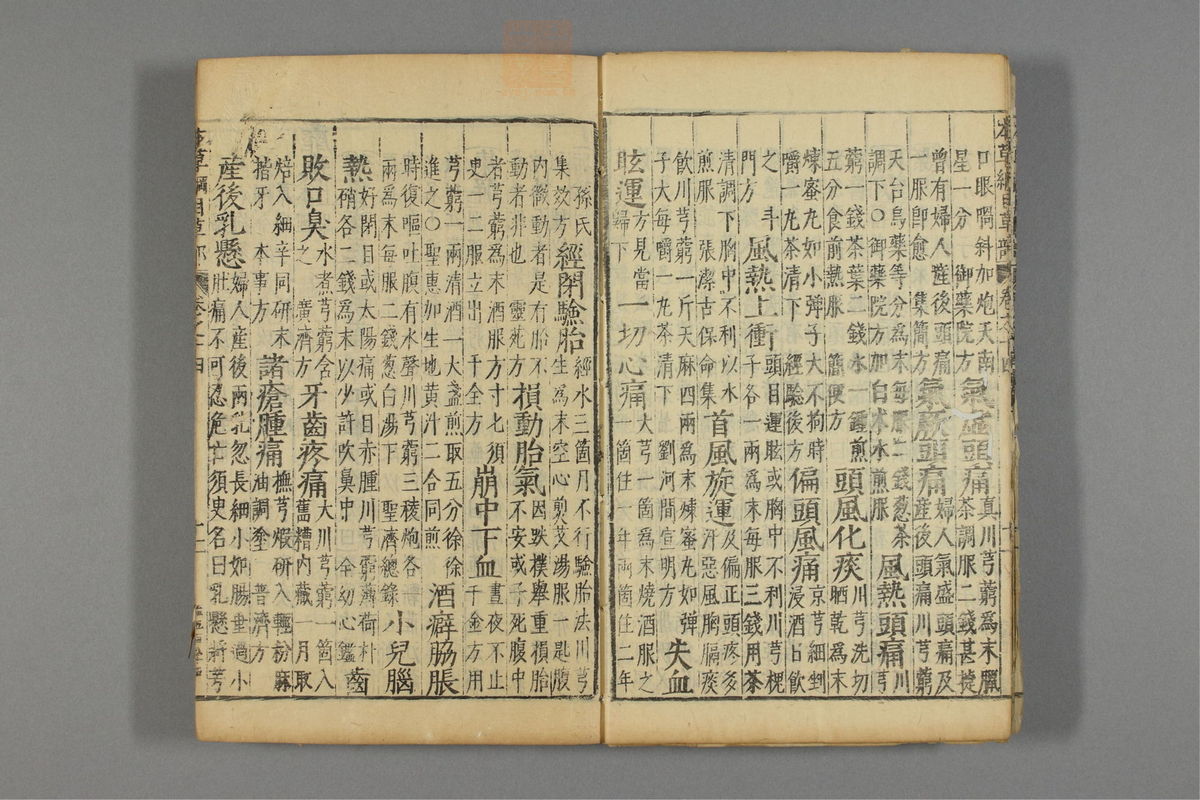 本草綱目草部 卷之十四
口眼喎斜加炮天南星一分 御藥院方 氣虛頭痛 真川芎藭爲末臘茶調服二錢甚捷
曾有婦人産後頭痛一服即愈 集簡方 氣厥頭痛 婦人氣盛頭痛及産後頭痛川芎藭
天台烏藥等分爲末每服二錢葱茶調下○御藥院方加白朮水煎服 風熱頭痛 川芎
藭一錢茶葉二錢水一鍾煎五分食前熱服 簡便方 頭風化痰 川芎洗切晒乾爲末
煉蜜丸如小彈子大不拘時嚼一丸茶清下 經驗後方 偏頭風痛 京芎細剉浸酒日飲
之 斗門方 風熱上衝 頭目運眩或胸中不利川芎槐子各一兩爲末每服三錢用茶
清調下胸中不利以水煎服 張潔古保命集 首風旋運 及偏正頭疼多汗惡風胸膈痰
飲川芎藭一斤天麻四兩爲末煉蜜丸如彈子大每嚼一丸茶清下 劉河間宣明方 失血
眩運 方見當歸下 一切心痛 大芎一箇爲末燒酒服之一箇住一年兩箇住二年
孫氏集效方 經閉驗胎 經水三箇月不行驗胎法川芎生爲末空心煎艾湯服一匙腹
内微動者是有胎不動者非也 靈苑方 損動胎氣 因跌撲舉重損胎不安或子死腹中
者芎藭爲末酒服方寸匕須臾一二服立出 千金方 崩中下血 晝夜不止千金方用
芎藭一兩清酒一大盞煎取五分徐徐進之○聖惠加生地黄汁二合同煎 酒癖脇脹
時復嘔吐腹有水聲川芎藭三稜炮各一兩爲末每服二錢葱白湯下 聖濟總錄 小兒腦
熱 好閉目或太陽痛或目赤腫川芎藭薄荷朴硝各二錢爲末以少許吹鼻中 全幼心鑑 齒
敗口臭 水煮芎藭含之 廣濟方 牙齒疼痛 大川芎藭一箇入舊糟内藏一月取
焙入細辛同研末揩牙 本事方 諸瘡腫痛 撫芎煆研入輕粉麻油調塗 普濟方
産後乳懸 婦人産後兩乳忽長細小如腸垂過小肚痛不可忍危亡須臾名曰乳懸將芎
本草綱目草部 卷之十四